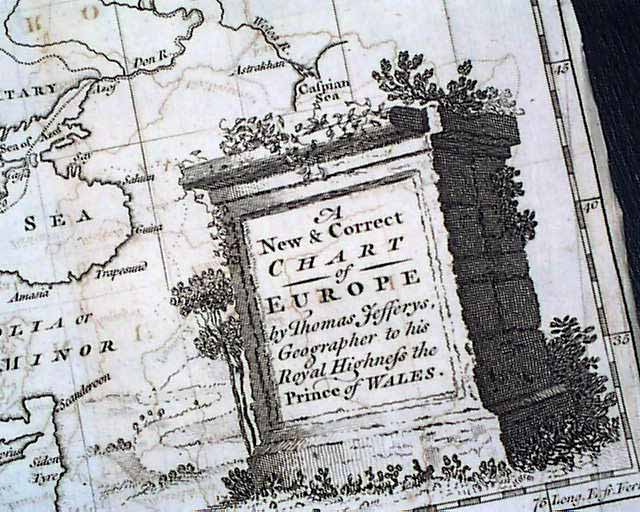 R O
Don R.
Astrakhan
Caspian
Sea
TARY
Azof
Sea of Azof
45
SEA
Trapesund
Amasia
OLIA or
MINOR
Scanderoon
Sidon
Tyre
A
New & Correct
CHART
of
EUROPE
by Thomas Jefferys,
Geographer to his
Royal Highneſs the
Prince of WALES.
40
35
Long. E. fr. Fer